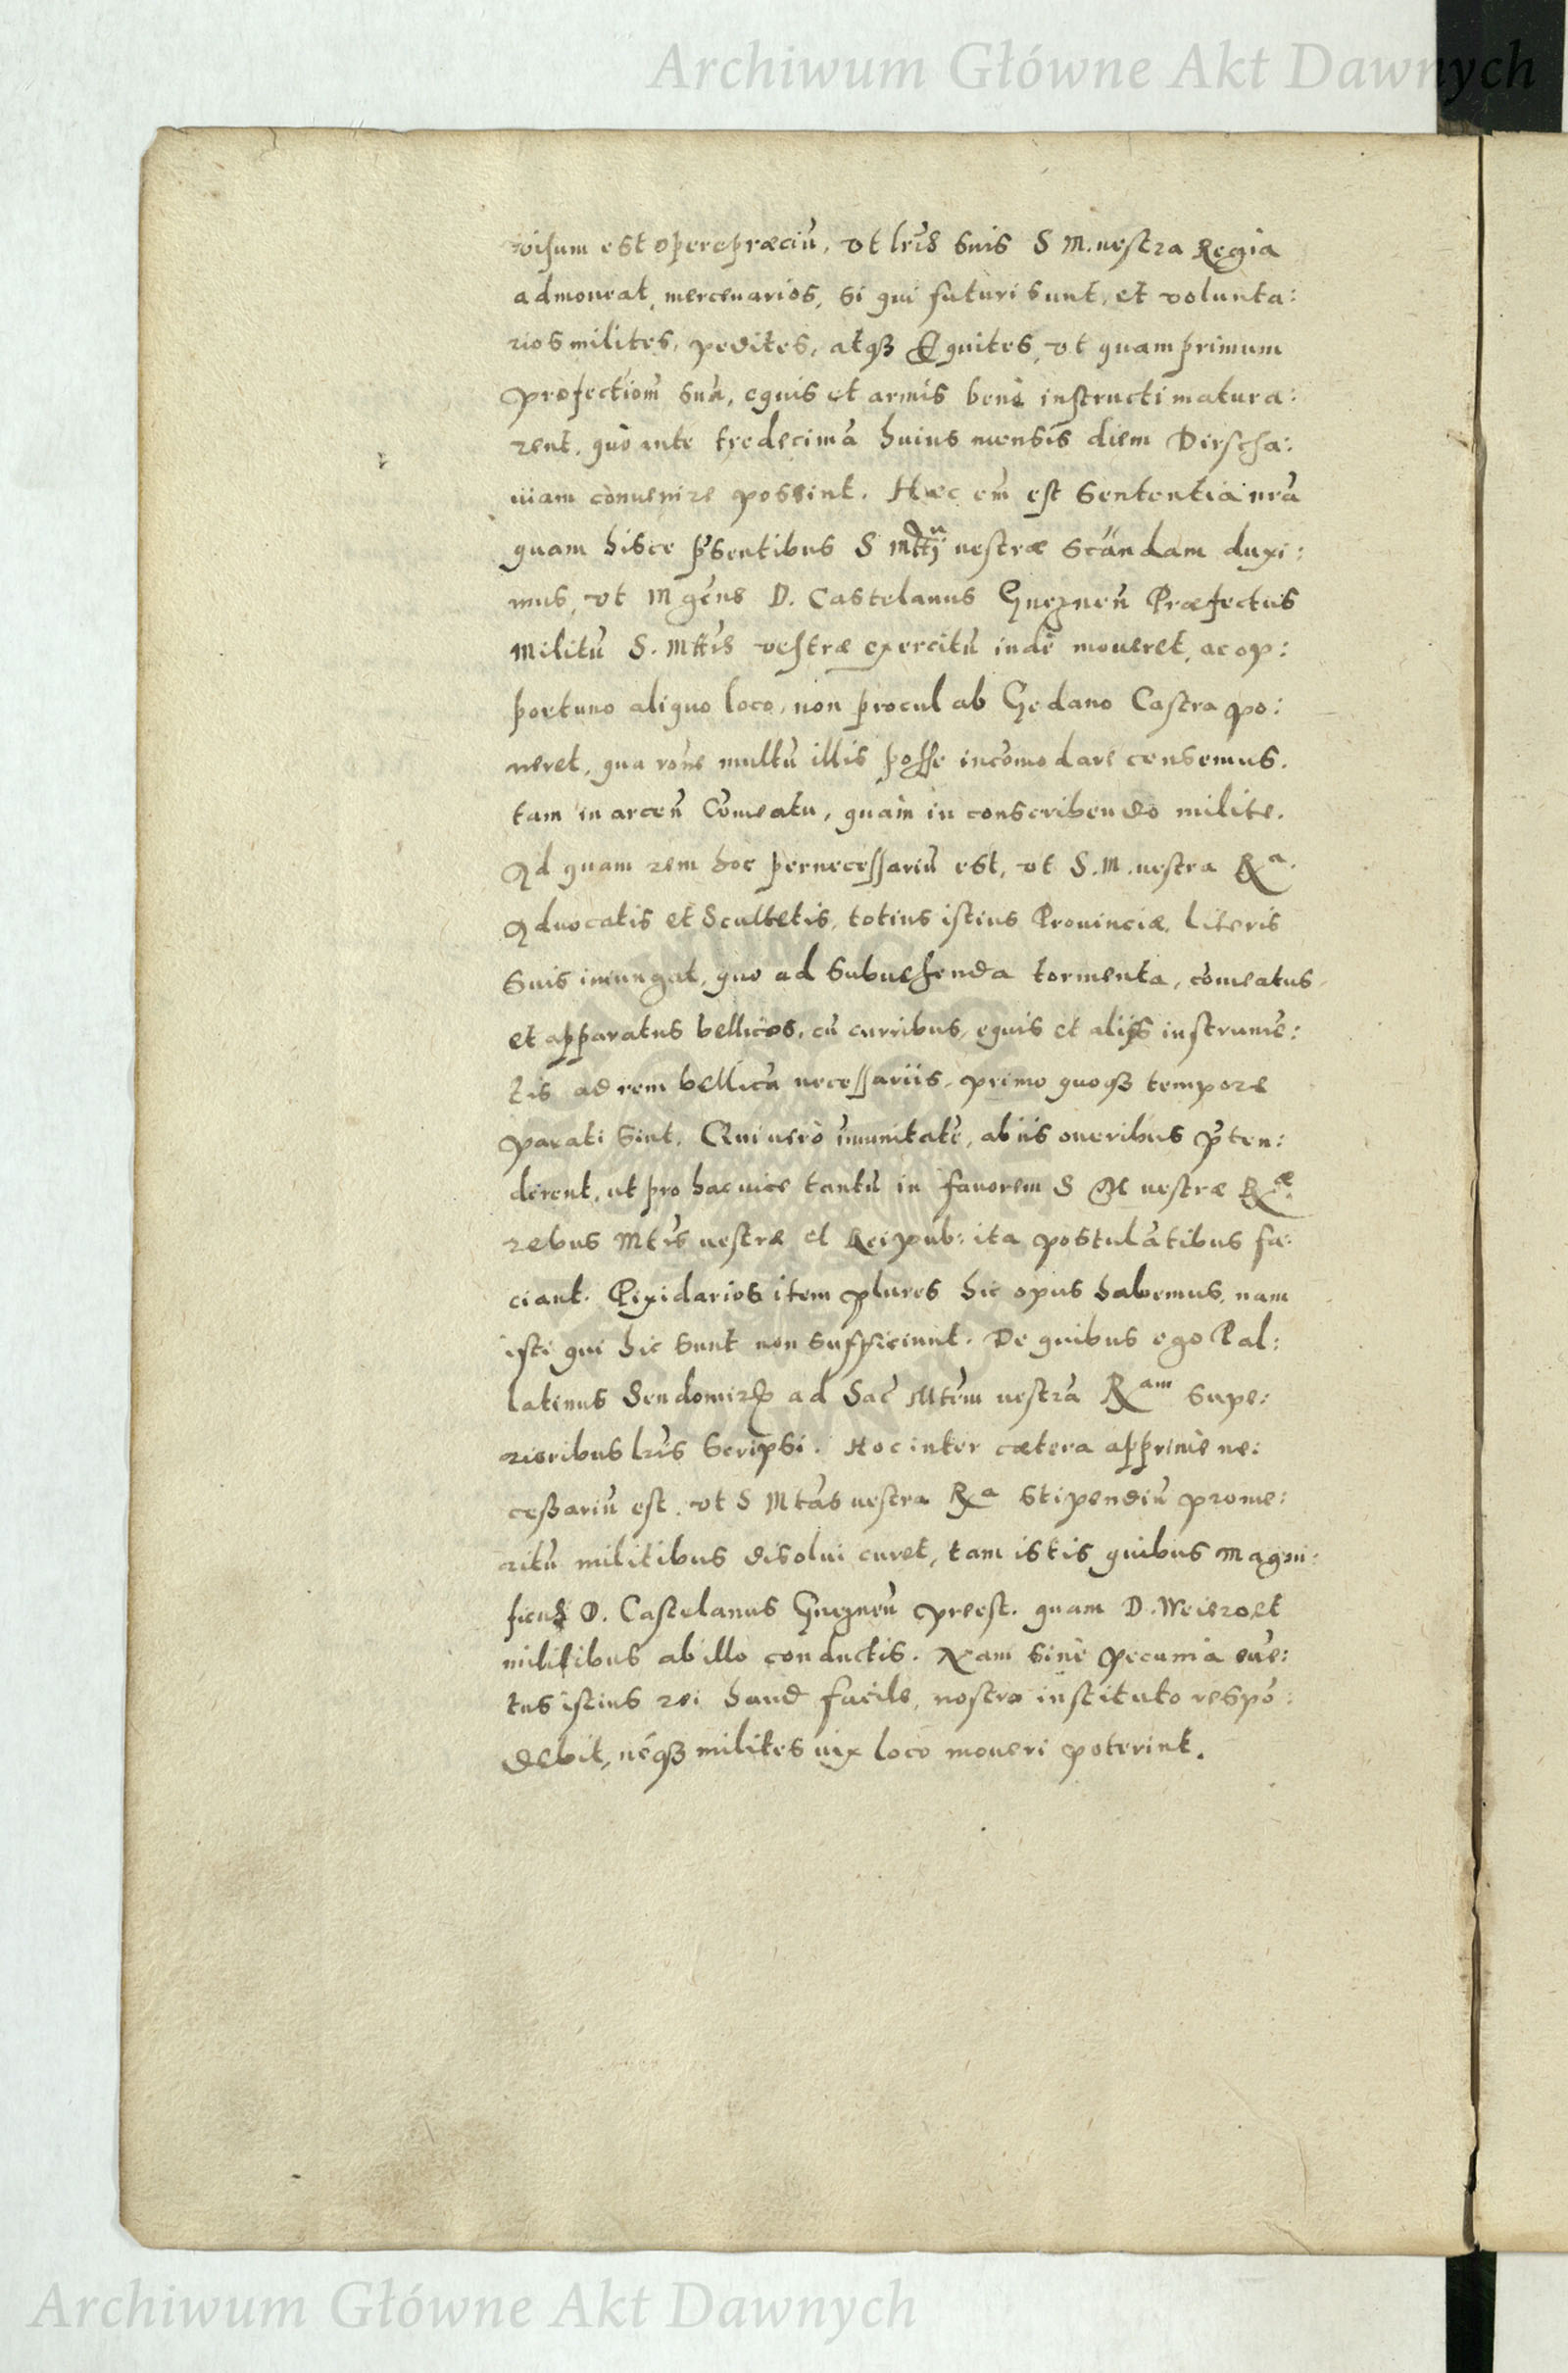 Archiwum Główne Akt Dawnych
visum est operepræciũ, vt lr̃is suis S M. uestra Regia
admoneat, mercenarios, si qui futuri sunt, et volunta:
rios milites, pedites, atqȝ Equites, vt quamprimum
profectiom̃ suã, equis et armis benè instructi matura:
rent, quò ante tredecimã huius mensis diem Dirscha:
uiam conuenire possint. Hæc em̃ est sententia nr̃a
quam hisce p̃sentibus S Mtti uestræ scũndam duxi:
mus, vt Mgc̃us D. Castelanus Gneznen̄ Præfectus
Militũ S. Mttis vestræ exercitũ inde moueret, ac op:
portuno aliquo loco, non procul ab Gedano Castra po:
neret, qua rone multũ illis posse incõmodare censemus.
tam in arcen̄ Cõmeatu, quàm in conscribendo milite.
Ad quam rem hoc pernecessariũ est, vt S. M. uestra Rª.
Aduocatis et Scultetis, totius istius Prouinciæ, literis
suis iniungat, quo ad subuehenda tormenta, cõmeatus
et apparatus bellicos, cũ curribus, equis et alijs instrumẽ:
tis ad rem bellicã necessariis, primo quoqȝ tempore
parati sint. Qui uerò im̃unitatẽ, ab iis oneribus p̃ten:
derent, ut pro hac uice tantũ in fauorem S M uestræ Ræ
rebus Mtis uestræ et Reipub: ita postulãtibus fa:
ciant. Pixidarios item plures hic opus habemus, nam
isti qui hic sunt non sufficiunt. De quibus ego Pal:
latinus Sendomirẽ ad Sac̃ Mtem uestrã Ram supe:
rioribus lr̃is scripsi. Hoc inter cætera apprimè ne:
cessariũ est, vt S Mtas uestra Ra stipendiũ prome:
ritũ militibus disolui curet, tam istis quibus Magni:
ficus D. Castelanus Gneznen̄ preest. quam D. Weiero, et
militibus ab illo conductis. Nam sinè pecunia eue:
tus istius rei haud facile, nostro instituto respõ:
debit, neqȝ milites uix loco moueri poterint.
Archiwum Główne Akt Dawnych